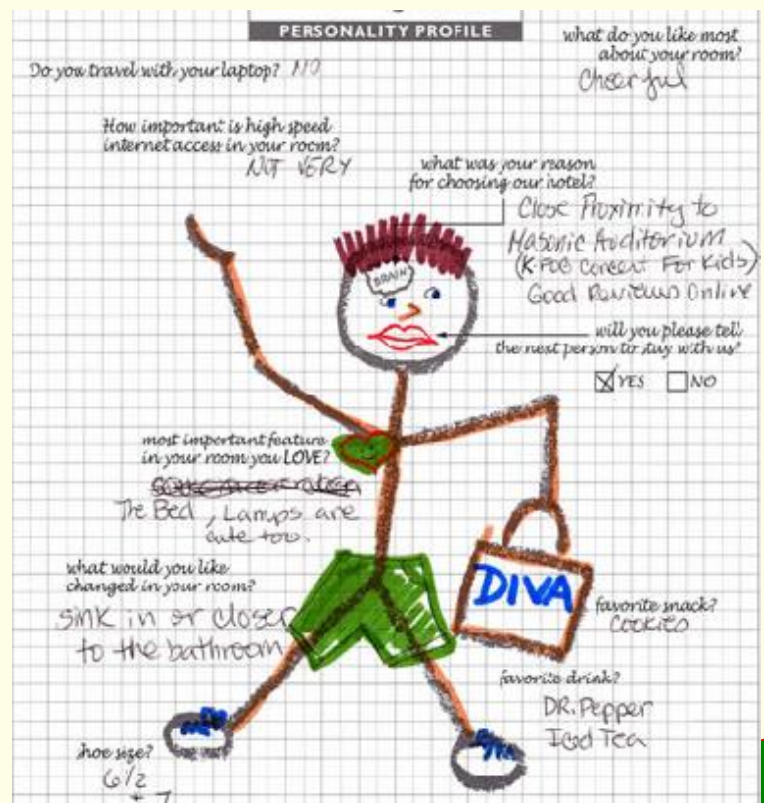 PERSONALITY PROFILE
what do you like most
about your room?
Cheerful
Do you travel with your laptop? NO
How important is high speed
internet access in your room?
NOT VERY
what was your reason
for choosing our hotel?
Close Proximity to
Masonic Auditorium
(K-FOG Concert For Kids)
Good Reviews Online
BRAIN
will you please tell
the next person to stay with us?
YES NO
most important feature
in your room you LOVE?
The Bed, Lamps are
cute too.
what would you like
changed in your room?
sink in or closer
to the bathroom
DIVA
favorite snack?
COOKIES
favorite drink?
DR. Pepper
Iced Tea
shoe size?
6 1/2